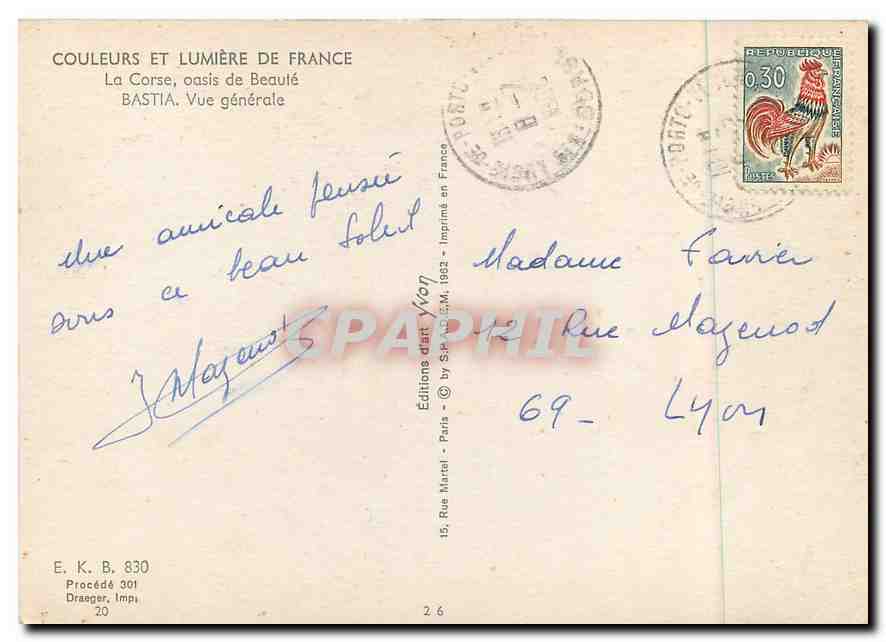 COULEURS ET LUMIÈRE DE FRANCE
La Corse, oasis de Beauté
BASTIA. Vue générale
Une amicale pensée
sous ce beau Soleil
J Mazenod
E. K. B. 830
Procédé 301
Draeger, Imp.
20
26
15, Rue Martel - Paris - © by S.P.A.D.E.M. 1962 - Imprimé en France
Éditions d'art Yvon
REPUBLIQUE FRANÇAISE
0,30
POSTES
Madame Favier
12 Rue Mazenod
69- Lyon
CPAPHIL